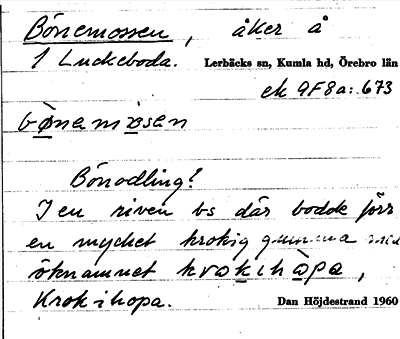 Bönemossen, åker å
1 Luckeboda. Lerbäcks sn, Kumla hd, Örebro län
ek 9F8a: 673
bönemåsen
Bönodling?
I en riven bs där bodde förr
en mycket krokig gumma med
öknamnet krokihopa,
Krokihopa. Dan Höjdestrand 1960